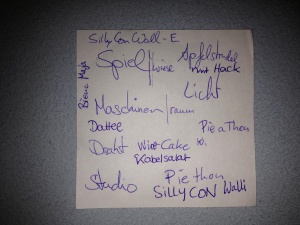 SillyCon Wall-E
Spiel/wiese Apfelstrudel
mit Hack
Biene Maja
Licht
Maschinen/raum
Dattel Pie a Thon
Draht Wirt Cake 10.
Kabelsalat
Studio Pie thon
SILLYCON Walli